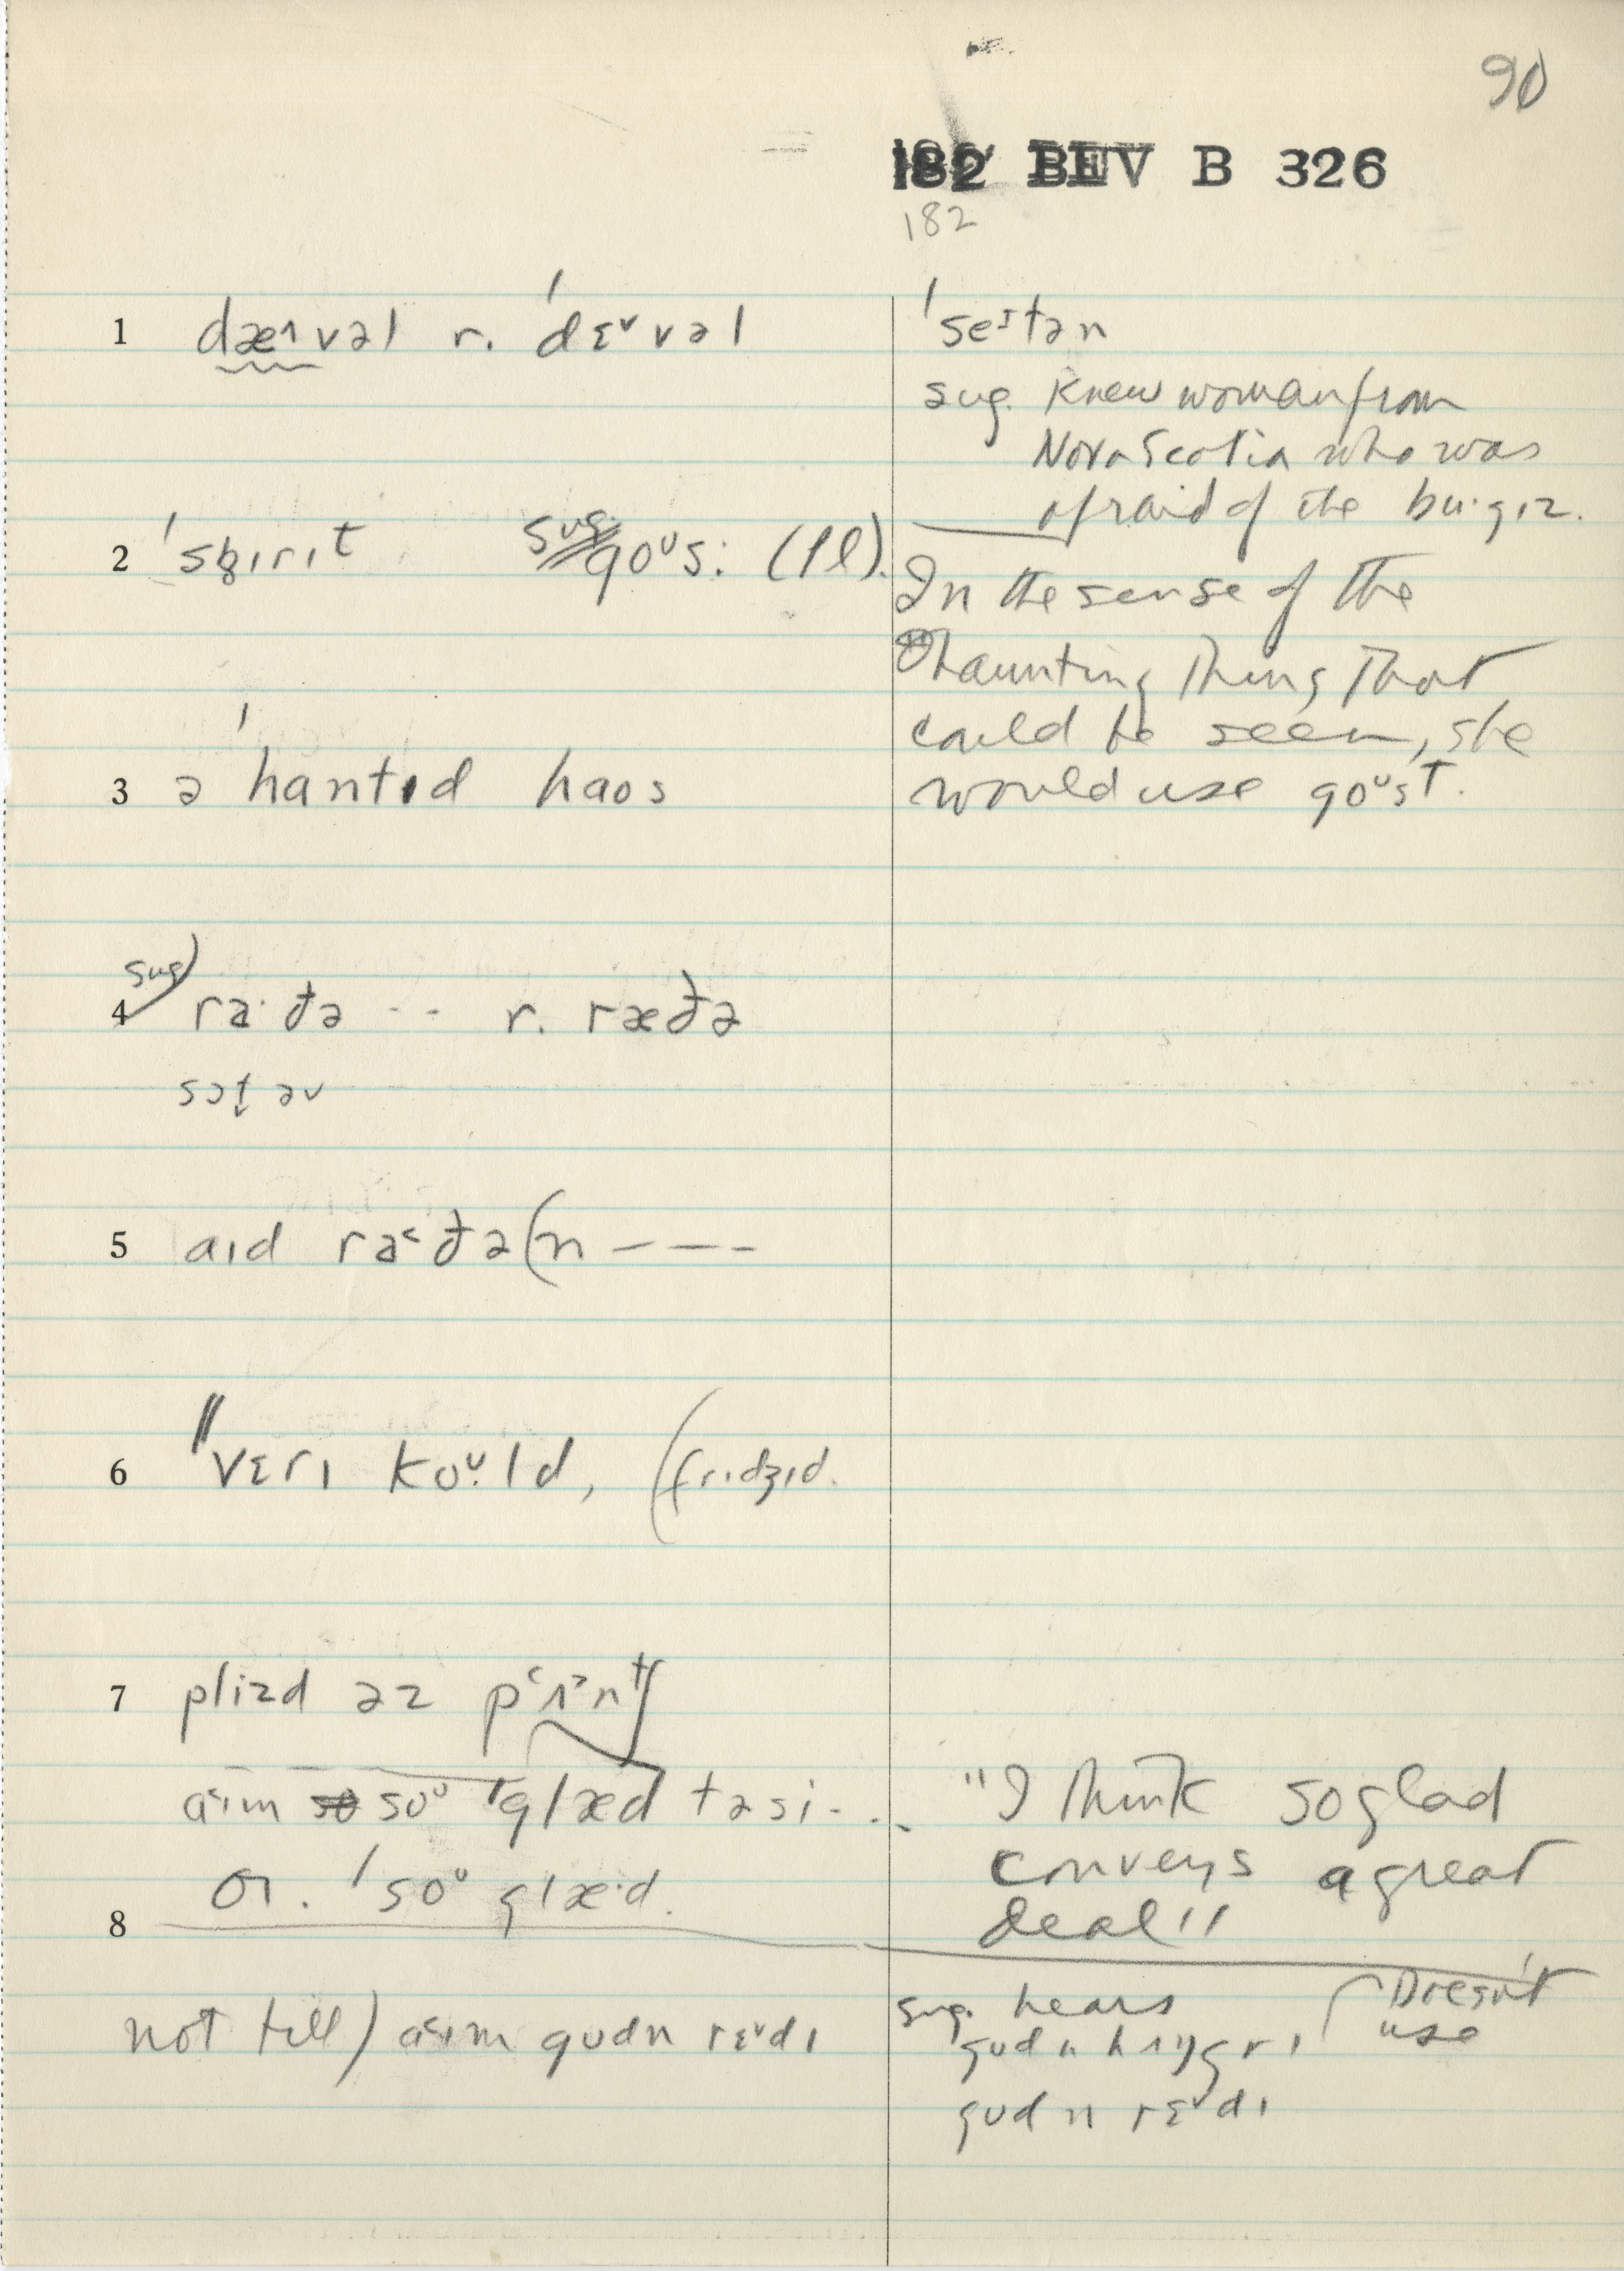 90
182 BEV B 326
182
1 dæ˄vəl r. ˈdɛ˅vəl
ˈseɪtən
sug. Knew woman from
Nova Scotia who was
afraid of the bu·gɪz.
2 ˈspɪrɪt sug. goᶷs: (Pl).
In the sense of the
haunting thing that
could be seen, she
would use goᶷst.
3 ə ˈhantɪd haos
4 sug) ra·ðə -- r. ræðə
sɔt əv
5 aɪd ra˂ðə(n ----
6 ˈˈvɛrɪ koᶷ·ld, (frɪdʒɪd.
7 plizd əz pʻʌ˃ntʃ
aˑɪm soᶷ ˈglæd təsi...
"I think so glad
conveys a great
deal"
or. ˈsoᶷ glæ·d.
8
not till) a˂ɪm gudn rɛ˅dɪ
sug. hears
gudn hʌŋgrɪ
(Doesn't
use
gudn rɛ˅dɪ